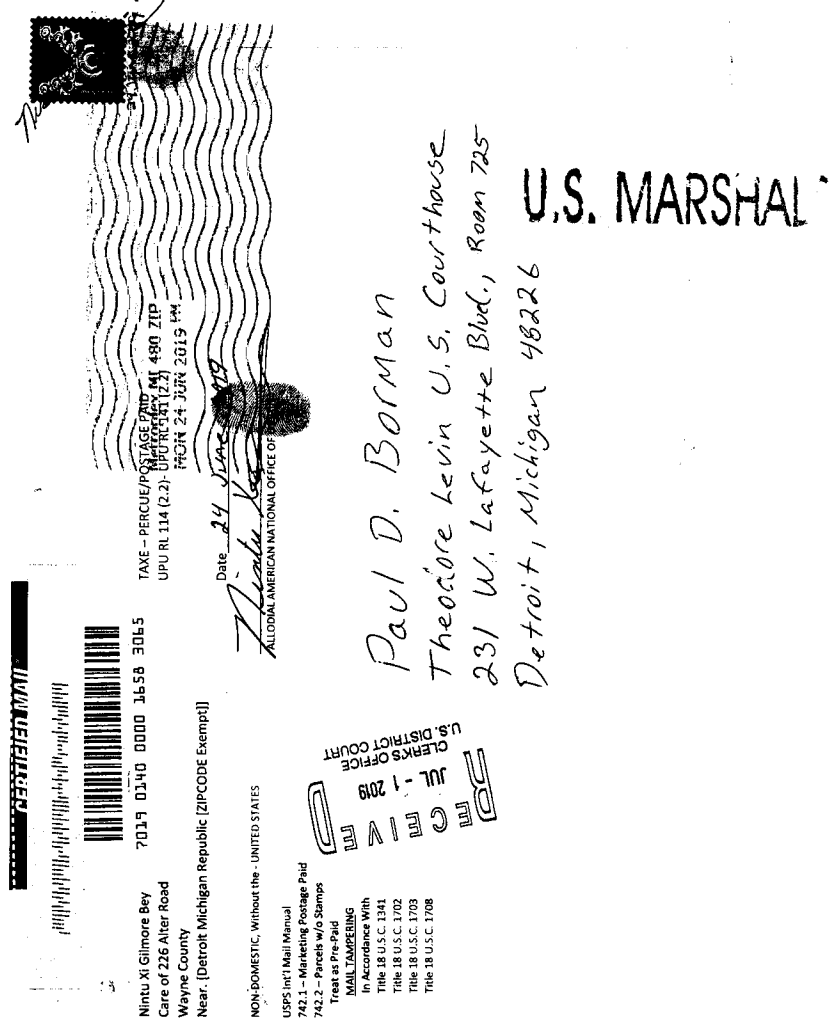 CERTIFIED MAIL
7019 0140 0000 1658 3065
Nintu Xi Gilmore Bey
Care of 226 Alter Road
Wayne County
Near. [Detroit Michigan Republic [ZIPCODE Exempt]]
NON-DOMESTIC, Without the - UNITED STATES
USPS Int'l Mail Manual
742.1 – Marketing Postage Paid
742.2 – Parcels w/o Stamps
Treat as Pre-Paid
MAIL TAMPERING
In Accordance With
Title 18 U.S.C. 1341
Title 18 U.S.C. 1702
Title 18 U.S.C. 1703
Title 18 U.S.C. 1708
TAXE – PERCUE/POSTAGE PAID
UPU RL 114 (2.2)- UPU RL 141 (2.2)
MI 480 ZIP
MON 24 JUN 2019 PM
Date 24 June 2019
ALLODIAL AMERICAN NATIONAL OFFICE OF
Paul D. Borman
Theodore Levin U.S. Courthouse
231 W. Lafayette Blvd., Room 725
Detroit, Michigan 48226
RECEIVED
JUL - 1 2019
CLERK'S OFFICE
U.S. DISTRICT COURT
U.S. MARSHAL